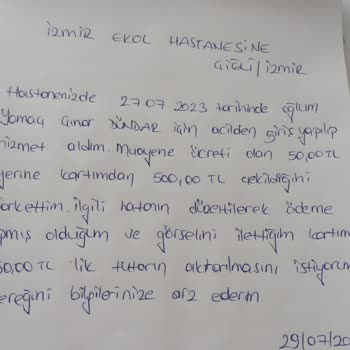 İZMİR EKOL HASTANESİNE
ÇİĞLİ/İZMİR
Hastanenizde 27.07.2023 tarihinde oğlum
Yamaç Çınar DÜNDAR için acilden giriş yapılıp
hizmet aldım. Muayene ücreti olan 50,00TL
yerine kartımdan 500,00 TL çekildiğini
farkettim. İlgili hatanın düzeltilerek ödeme
pmış olduğum ve görselini ilettiğim kartım
50,00TL 'lik tutarın aktarılmasını istiyorum
ereğini bilgilerinize arz ederim.
29/07/20